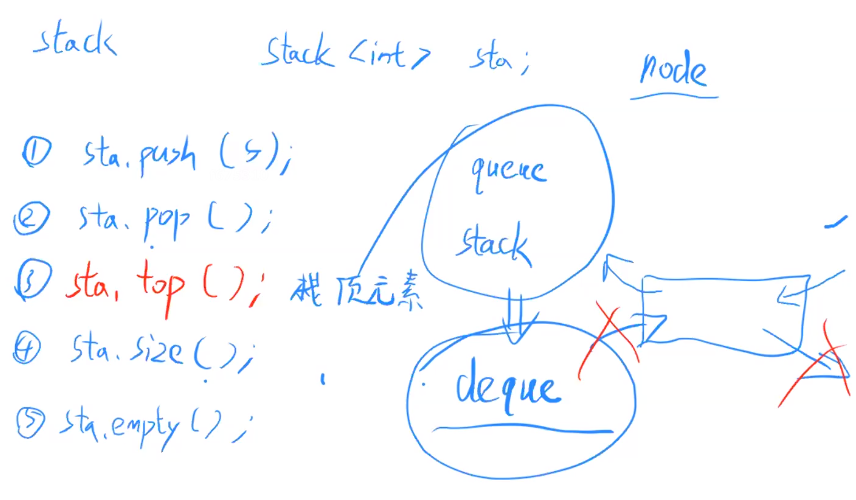 stack
stack <int> sta;
node
① sta.push (5);
② sta.pop ();
③ sta. top (); 栈顶元素
④ sta.size ();
⑤ sta.empty ();
queue
stack
deque